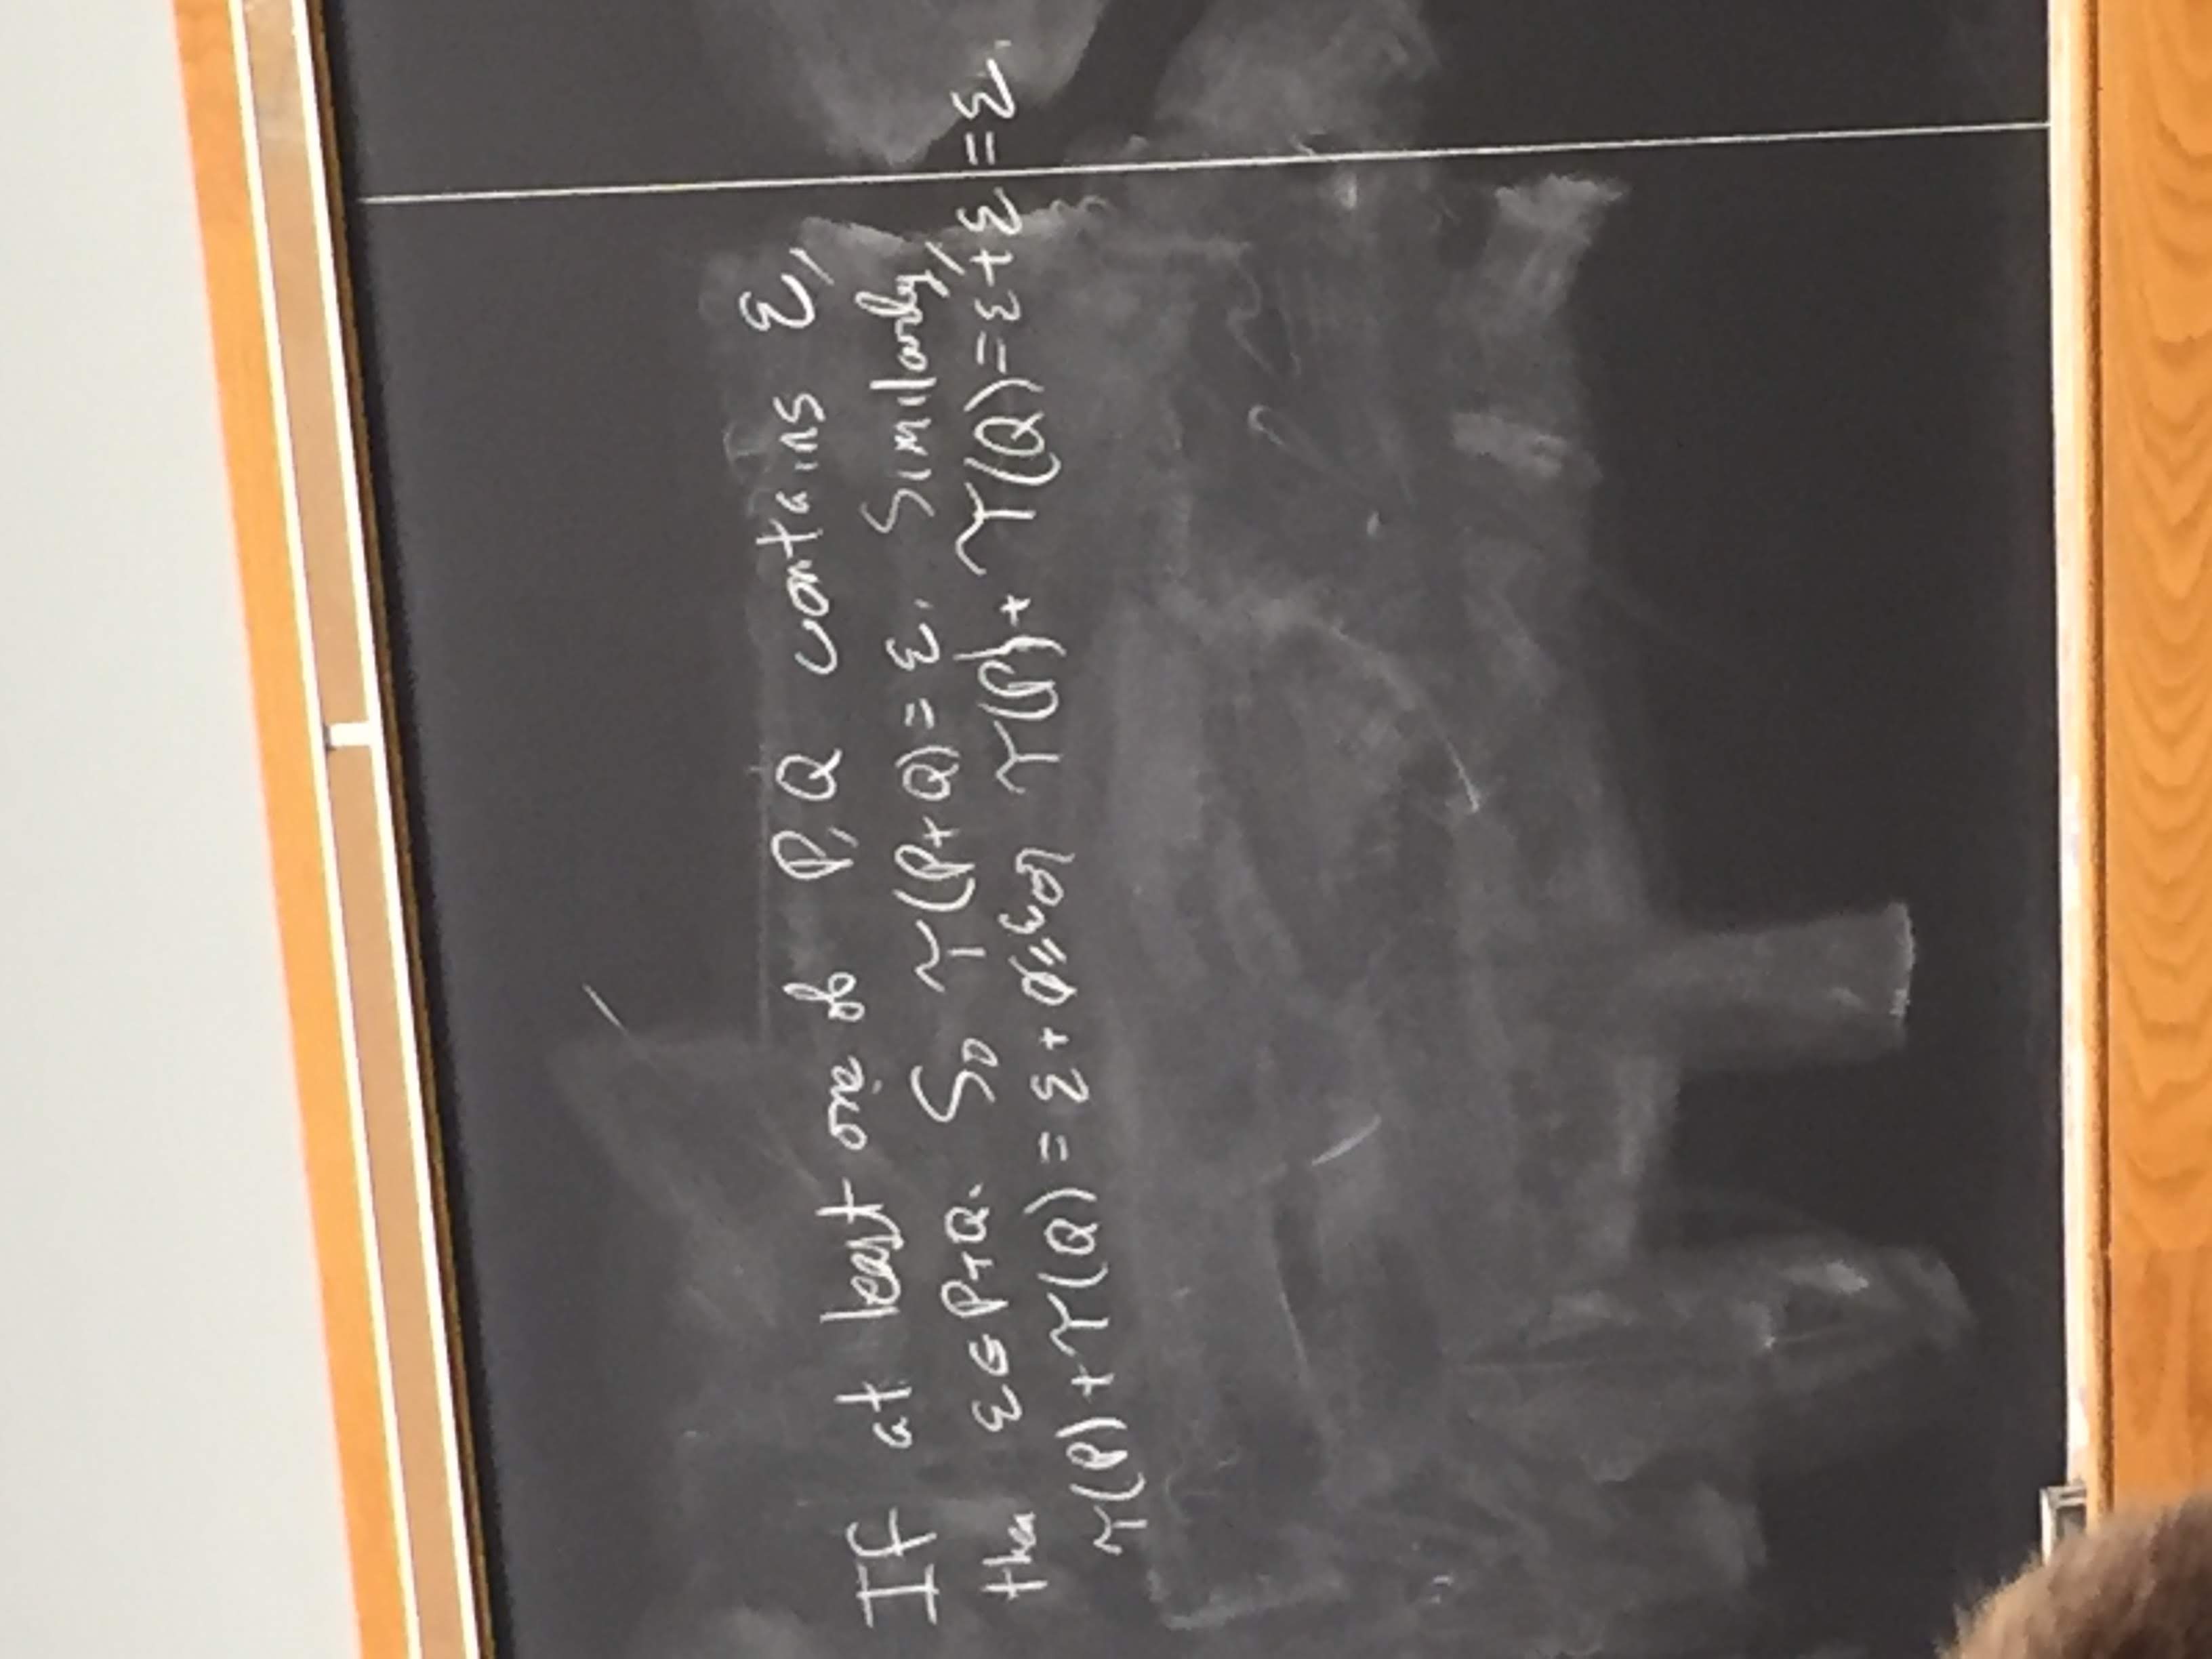 If at least one of P, Q contains ε,
then ε∈P+Q. So τ(P+Q)=ε. Similarly,
τ(P)+τ(Q)=ε+∅=ε or τ(P)+τ(Q)=ε+ε=ε.